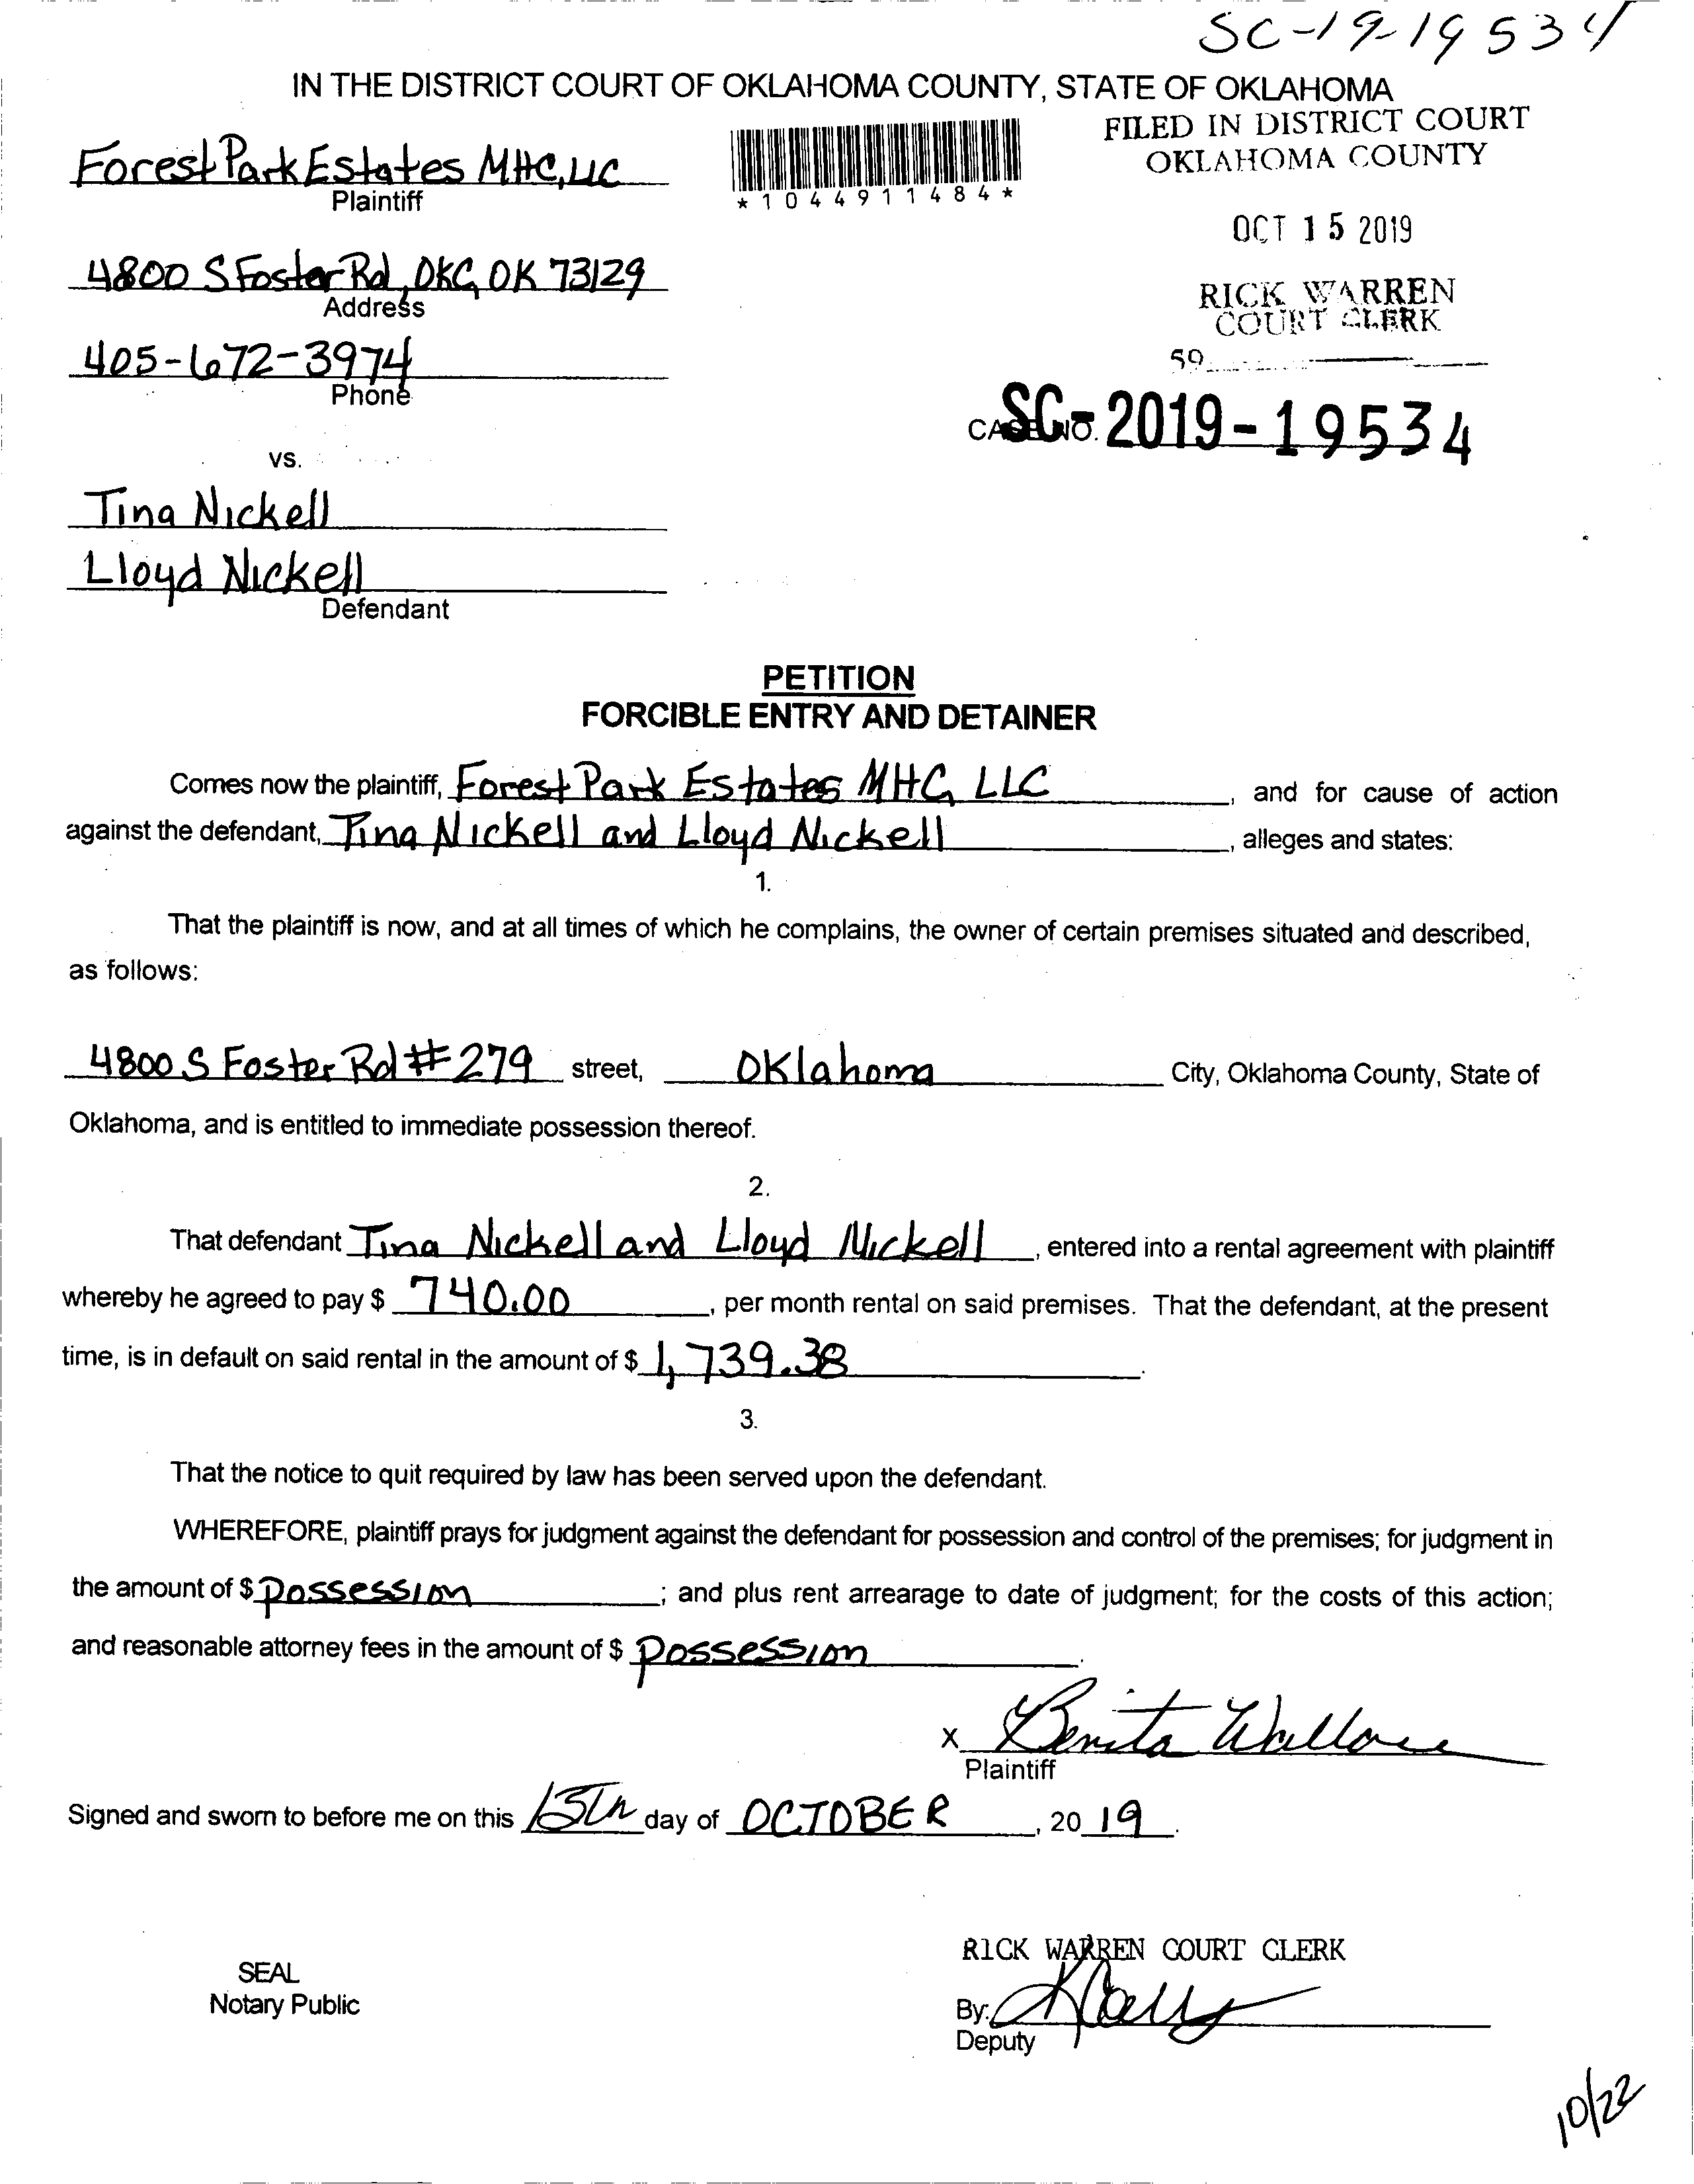 SC-19-19534
IN THE DISTRICT COURT OF OKLAHOMA COUNTY, STATE OF OKLAHOMA
FILED IN DISTRICT COURT
OKLAHOMA COUNTY
Forest Park Estates MHC, LLC
Plaintiff
*1044911484*
OCT 15 2019
4800 S Foster Rd, OKC, OK 73129
Address
RICK WARREN
COURT CLERK
405-672-3974
Phone
59
CASE NO. SC-2019-19534
vs.
Tina Nickell
Lloyd Nickell
Defendant
PETITION
FORCIBLE ENTRY AND DETAINER
Comes now the plaintiff, Forest Park Estates MHC, LLC, and for cause of action
against the defendant, Tina Nickell and Lloyd Nickell, alleges and states:
1.
That the plaintiff is now, and at all times of which he complains, the owner of certain premises situated and described,
as follows:
4800 S Foster Rd #279 street, Oklahoma City, Oklahoma County, State of
Oklahoma, and is entitled to immediate possession thereof.
2.
That defendant Tina Nickell and Lloyd Nickell, entered into a rental agreement with plaintiff
whereby he agreed to pay $ 740.00, per month rental on said premises. That the defendant, at the present
time, is in default on said rental in the amount of $ 1,739.38.
3.
That the notice to quit required by law has been served upon the defendant.
WHEREFORE, plaintiff prays for judgment against the defendant for possession and control of the premises; for judgment in
the amount of $ Possession; and plus rent arrearage to date of judgment; for the costs of this action;
and reasonable attorney fees in the amount of $ Possession.
X Benita Wallace
Plaintiff
Signed and sworn to before me on this 15th day of OCTOBER, 20 19.
RICK WARREN COURT CLERK
SEAL
Notary Public
By:
Deputy
10/22